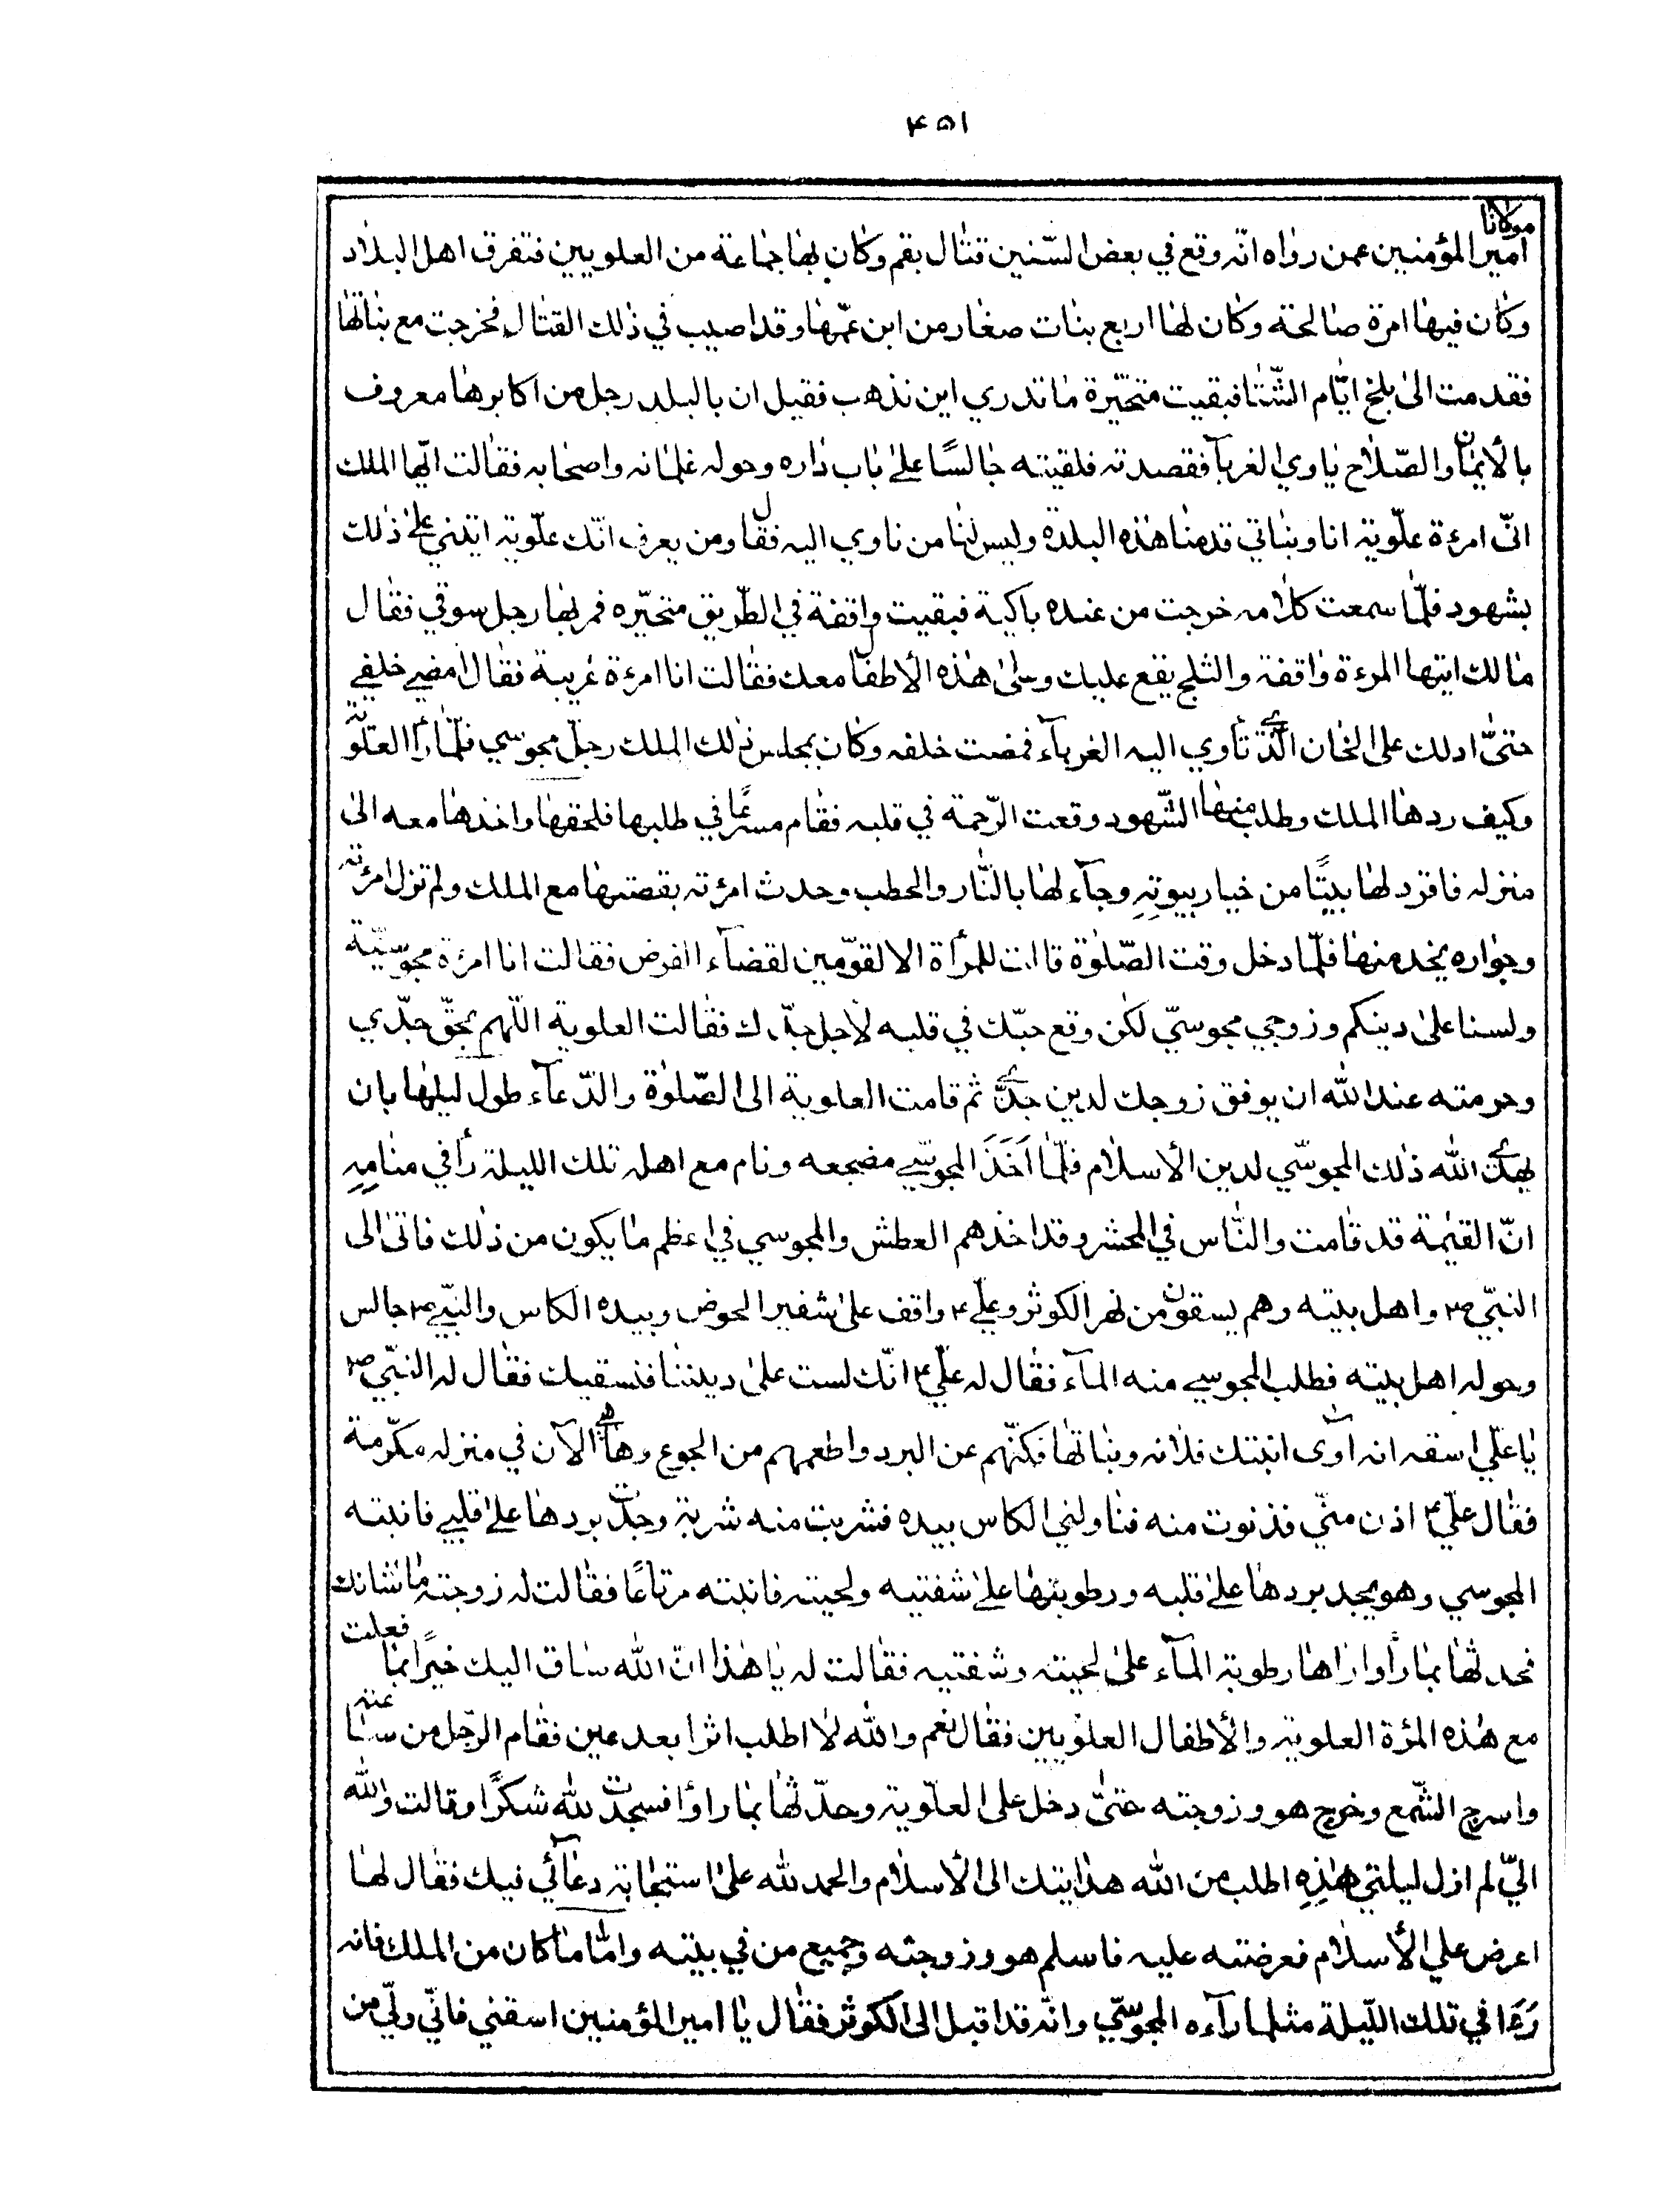 ٤٥١
مولانا
امير المؤمنين عمن رواه انّه وقع في بعض السّنين قتال بقم وكان بها جماعة من العلويين فتفرق اهل البلاد
وكان فيها امرة صالحة وكان لها اربع بنات صغار من ابن عمّها وقد اصيب في ذلك القتال فخرجت مع بناتها
فقدمت الى بلخ ايّام الشّتا فبقيت متحيّرة ما تدري اين نذهب فقيل ان بالبلد رجل من اكابرها معروف
بالأيمان والصّلاح ياوي الغربآ فقصدته فلقيته جالسًا على باب داره وحوله غلمانه واصحابه فقالت ايّها الملك
انّي امرءة علّوية انا وبناتي قدمنا هذه البلدة وليس لنا من ناوي اليه فقال ومن يعرف انّك علّوية ايتني على ذلك
بشهود فلّما سمعت كلامه خرجت من عنده باكية فبقيت واقفة في الطّريق متحيّره فمر بها رجل سوقي فقال
مالك ايتها المرءة واقفة والثلج يقع عليك وعلى هذه الأطفال معك فقالت انا امرءة غريبة فقال امضي خلفي
حتىّ ادلك على الخان الّذي تأوي اليه الغربآء فمضت خلفه وكان بمجلس ذلك الملك رجل مجوسي فلّما رأ العلّوية
وكيف ردها الملك وطلب منها الشّهود وقعت الرّحمة في قلبه فقام مسرعًا في طلبها فلحقها واخذها معه الى
منزله فافرد لها بيتًا من خيار بيوتِهِ وجآء لها بالنّار والحطب وحدث امرءته بقصتها مع الملك ولم تزل امرءته
وجواره يخدمنها فلّما دخل وقت الصّلوة قالت للمرأة الا لقوّمين لقضآء الفرض فقالت انا امرءة مجوسّية
ولسنا على دينكم وزوجي مجوسيّ لكن وقع حبّك في قلبه لأجل جدّك فقالت العلوية اللّهم بحقّ جدّي
وحرمته عند الله ان يوفق زوجك لدين جدّي ثم قامت العلوية الى الصّلوة والدّعآء طول ليلها بان
يهدي الله ذلك المجوسّي لدين الأسلام فلّما اَخَذَ المجوسّي مضجعه ونام مع اهله تلك الليلة رأ في منامِهِ
انّ القيمة قد قامت والنّاس في المحشر وقد اخذهم العطش والمجوسي في اعظم ما يكون من ذلك فاتى الى
النبّي ص واهل بيته وهم يسقون من نهر الكوثر وعلّي ع واقف على شفير الحوض وبيده الكاس والنبّي ص جالس
وحوله اهل بيته فطلب المجوسي منه المآء فقال له علّي ع انّك لست على ديننا فنسقيك فقال له النبّي ص
يا علّي اسقه انه آوى ابنتك فلانه وبناتها فكنّهم عن البرد واطعمهم من الجوع وها هي الآن في منزله مكرّمة
فقال علّي ع اذن منّي فدنوت منه فناولني الكاس بيده فشربت منه شربة وجدّت بردها على قلبي فانتبه
المجوسي وهو يجد بردها على قلبه ورطوبتها على شفتيه ولحيته فانتبه مرتاعًا فقالت له زوجته ما شانك
فحدثها بما رأ وارأها رطوبة المآء على لحيته وشفتيه فقالت له يا هذا انّ الله ساق اليك خيرًا بما فعلت
مع هذه المرءة العلوية والأطفال العلوّيين فقال نعم والله لا اطلب اثرا بعد عين فقام الرّجل من ساعته
واسرج الشّمع وخرج هو وزوجته حتىّ دخل على العلّوية وحدّثها بما رأوا فسجدت لله شكرًا وقالت والله
انيّ لم ازل ليلتي هذِهِ اطلب من الله هدايتك الى الأسلام والحمد لله على استجابة دعآئي فيك فقال لها
اعرض علي الأسلام فعرضته عليه فاسلم هو وزوجته وجميع من في بيته وامّا ما كان من الملك فانه
رَءَا في تلك اللّيلة مثلما رآءه المجوسّي وانّه قد اقبل الى الكوثر فقال يا امير المؤمنين اسقني فانّي وليّ من